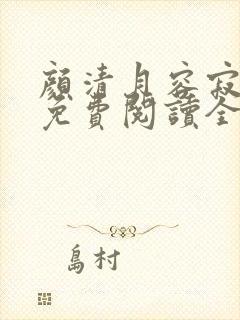 顏清月容寂
免費閱讀全
島村